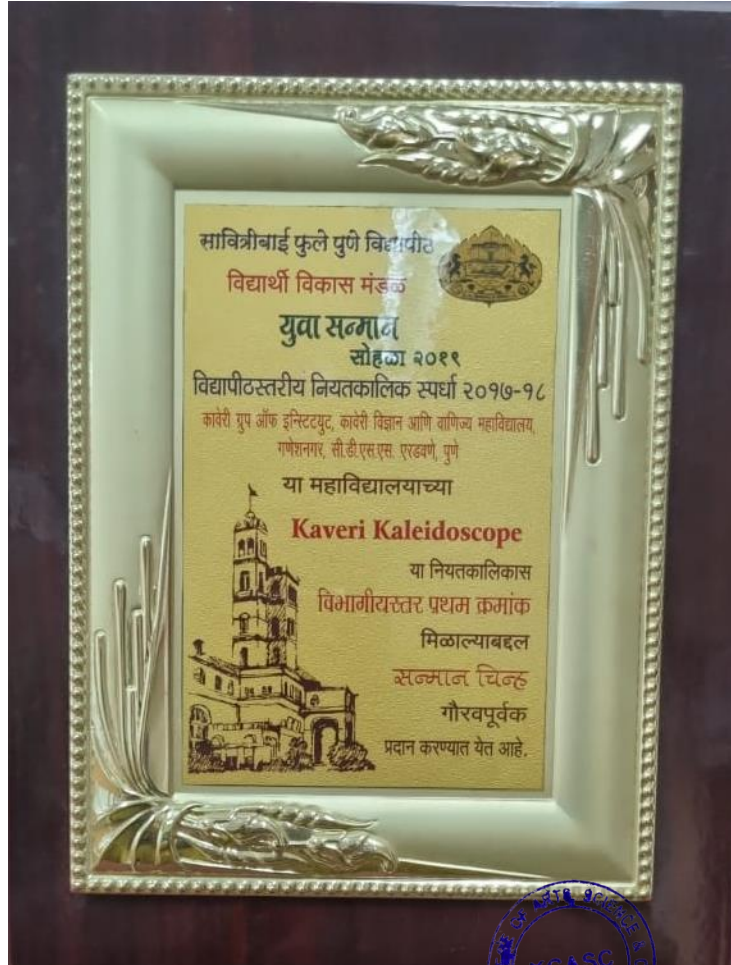 सावित्रीबाई फुले पुणे विद्यापीठ
विद्यार्थी विकास मंडळ
युवा सन्मान
सोहळा २०१९
विद्यापीठस्तरीय नियतकालिक स्पर्धा २०१७-१८
कावेरी ग्रुप ऑफ इन्स्टिटयुट, कावेरी विज्ञान आणि वाणिज्य महाविद्यालय,
गणेशनगर, सी.डी.एस.एस. एरडवणे, पुणे
या महाविद्यालयाच्या
Kaveri Kaleidoscope
या नियतकालिकास
विभागीयस्तर प्रथम क्रमांक
मिळाल्याबद्दल
सन्मान चिन्ह
गौरवपूर्वक
प्रदान करण्यात येत आहे.
OF ARTS SCIENCE